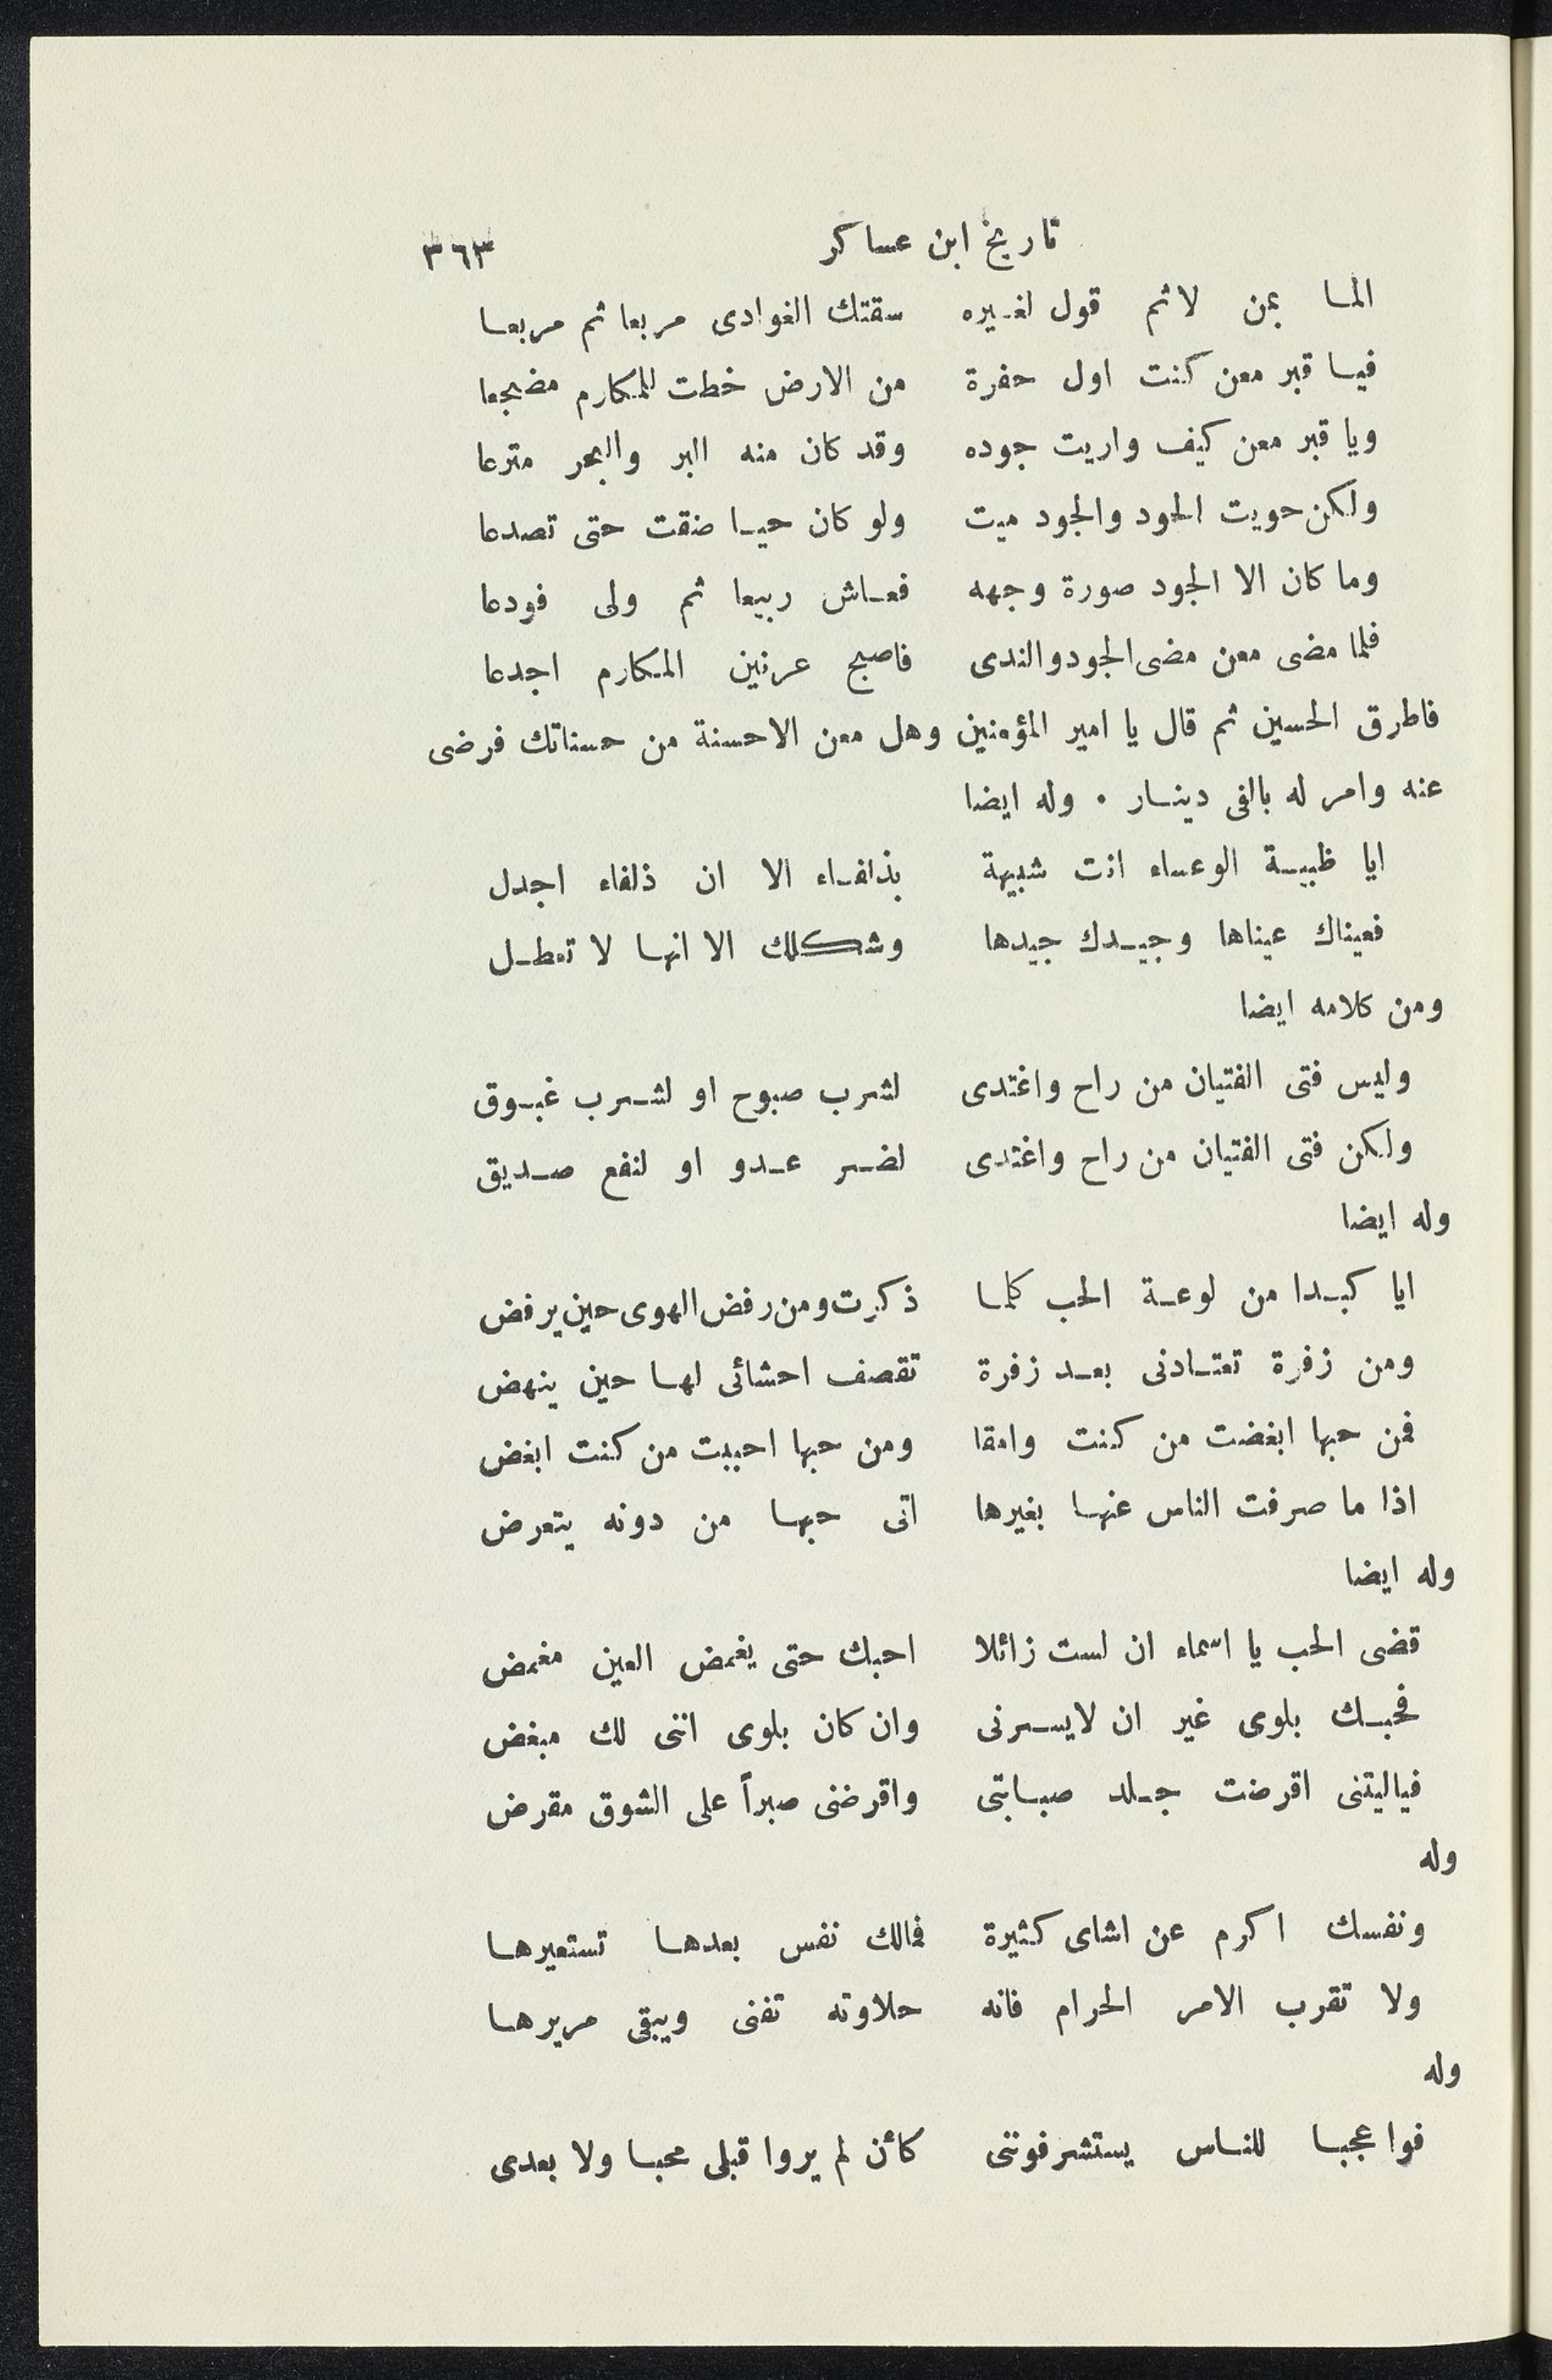 تاريخ ابن عساكر ٣٦٣
الما بمن لاثم قول لغيره سقتك الغوادى مربعا ثم مربعا
فيا قبر معن كنت اول حفرة من الارض خطت للمكارم مضجعا
ويا قبر معن كيف واريت جوده وقد كان منه البر والبحر مترعا
ولكن حويت الجود والجود ميت ولو كان حيا ضقت حتى تصدعا
وما كان الا الجود صورة وجهه فعاش ربيعا ثم ولى فودعا
فلما مضى معن مضى الجود والندى فاصبح عرنين المكارم اجدعا
فاطرق الحسين ثم قال يا امير المؤمنين وهل معن الاحسنة من حسناتك فرضى
عنه وامر له بالفى دينار . وله ايضا
ايا ظبية الوعساء انت شبيهة بذلفاء الا ان ذلفاء اجدل
فعيناك عيناها وجيدك جيدها وشكلك الا انها لا تعطل
ومن كلامه ايضا
وليس فتى الفتيان من راح واغتدى لشرب صبوح او لشرب غبوق
ولكن فتى الفتيان من راح واغتدى لضر عدو او لنفع صديق
وله ايضا
ايا كبدا من لوعة الحب كلما ذكرت ومن رفض الهوى حين يرفض
ومن زفرة تعتادنى بعد زفرة تقصف احشائى لها حين ينهض
فمن حبها ابغضت من كنت وامقا ومن حبها احببت من كنت ابغض
اذا ما صرفت الناس عنها بغيرها اتى حبها من دونه يتعرض
وله ايضا
قضى الحب يا اسماء ان لست زائلا احبك حتى يغمض العين مغمض
فحبك بلوى غير ان لايسرنى وان كان بلوى اننى لك مبغض
فياليتنى اقرضت جلد صبابتى واقرضنى صبراً على الشوق مقرض
وله
ونفسك اكرم عن اشاى كثيرة فمالك نفس بعدها تستعيرها
ولا تقرب الامر الحرام فانه حلاوته تفنى ويبقى مريرها
وله
فوا عجبا للناس يستشرفوننى كأن لم يروا قبلى محبا ولا بعدى